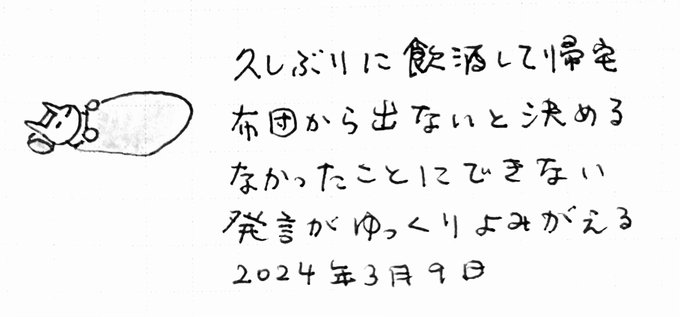 久しぶりに飲酒して帰宅
布団から出ないと決める
なかったことにできない
発言がゆっくりよみがえる
2024年3月9日